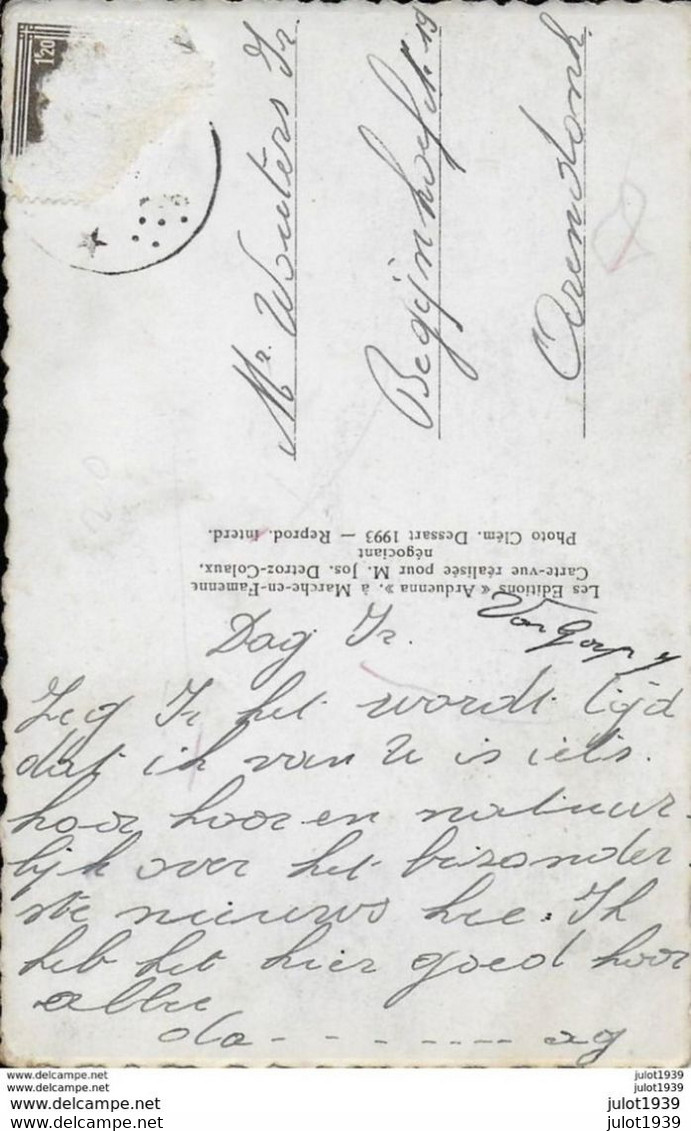 1'20
Mr. Wouters Jr.
Begijnhofst. 19
Arendonk
Photo Clém. Dessart 1993 — Reprod. Interd.
négociant
Carte-vue réalisée pour M. Jos. Detroz-Colaux,
Les Editions « Arduenna », à Marche-en-Famenne
Dag Jr.
Zeg Jr het wordt tijd
dat ik van U is iets.
hoor hoor en natuur-
lijk over het bizonder
ste nieuws hee. Ik
heb het hier goed hoor
allee
da - - - - - - - - ag
www.delcampe.net
www.delcampe.net
www.delcampe.net
www.delcampe.net
julot1939
julot1939
julot1939
julot1939